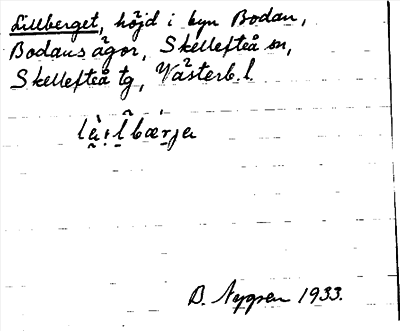 Lillberget, höjd i byn Bodan,
Bodans ägor, Skellefteå sn,
Skellefteå tg, Västerb. l.
B. Nygren 1933.